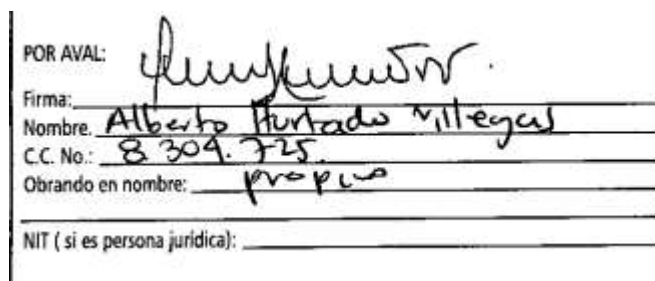 POR AVAL:
Firma:
Nombre. Alberto Hurtado Villegas
C.C. No.: 8.304.725.
Obrando en nombre: propio
NIT ( si es persona jurídica):